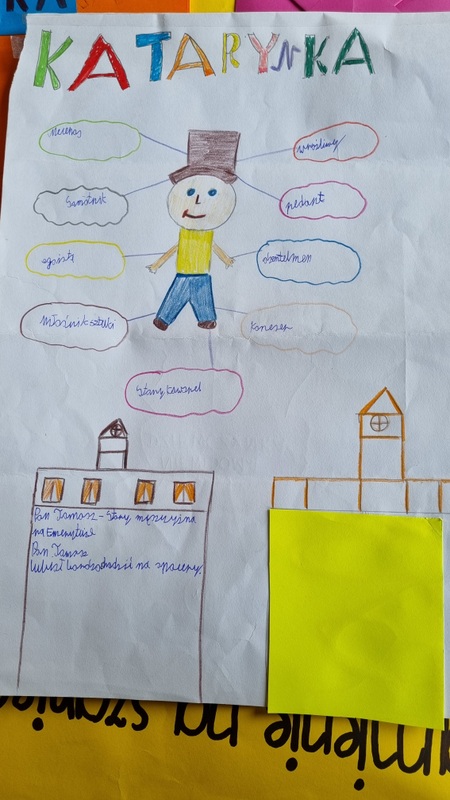 KATARYNKA
Mecenas
wrażliwy
Samotnik
pedant
egoista
dżentelmen
Miłośnik sztuki
Koneser
Stary kawaler
Pan Tomasz - Stary mężczyzna
na Emeryturze
Pan Tomasz
lubił bardzo chodzić na spacery.
amienie na szaniec